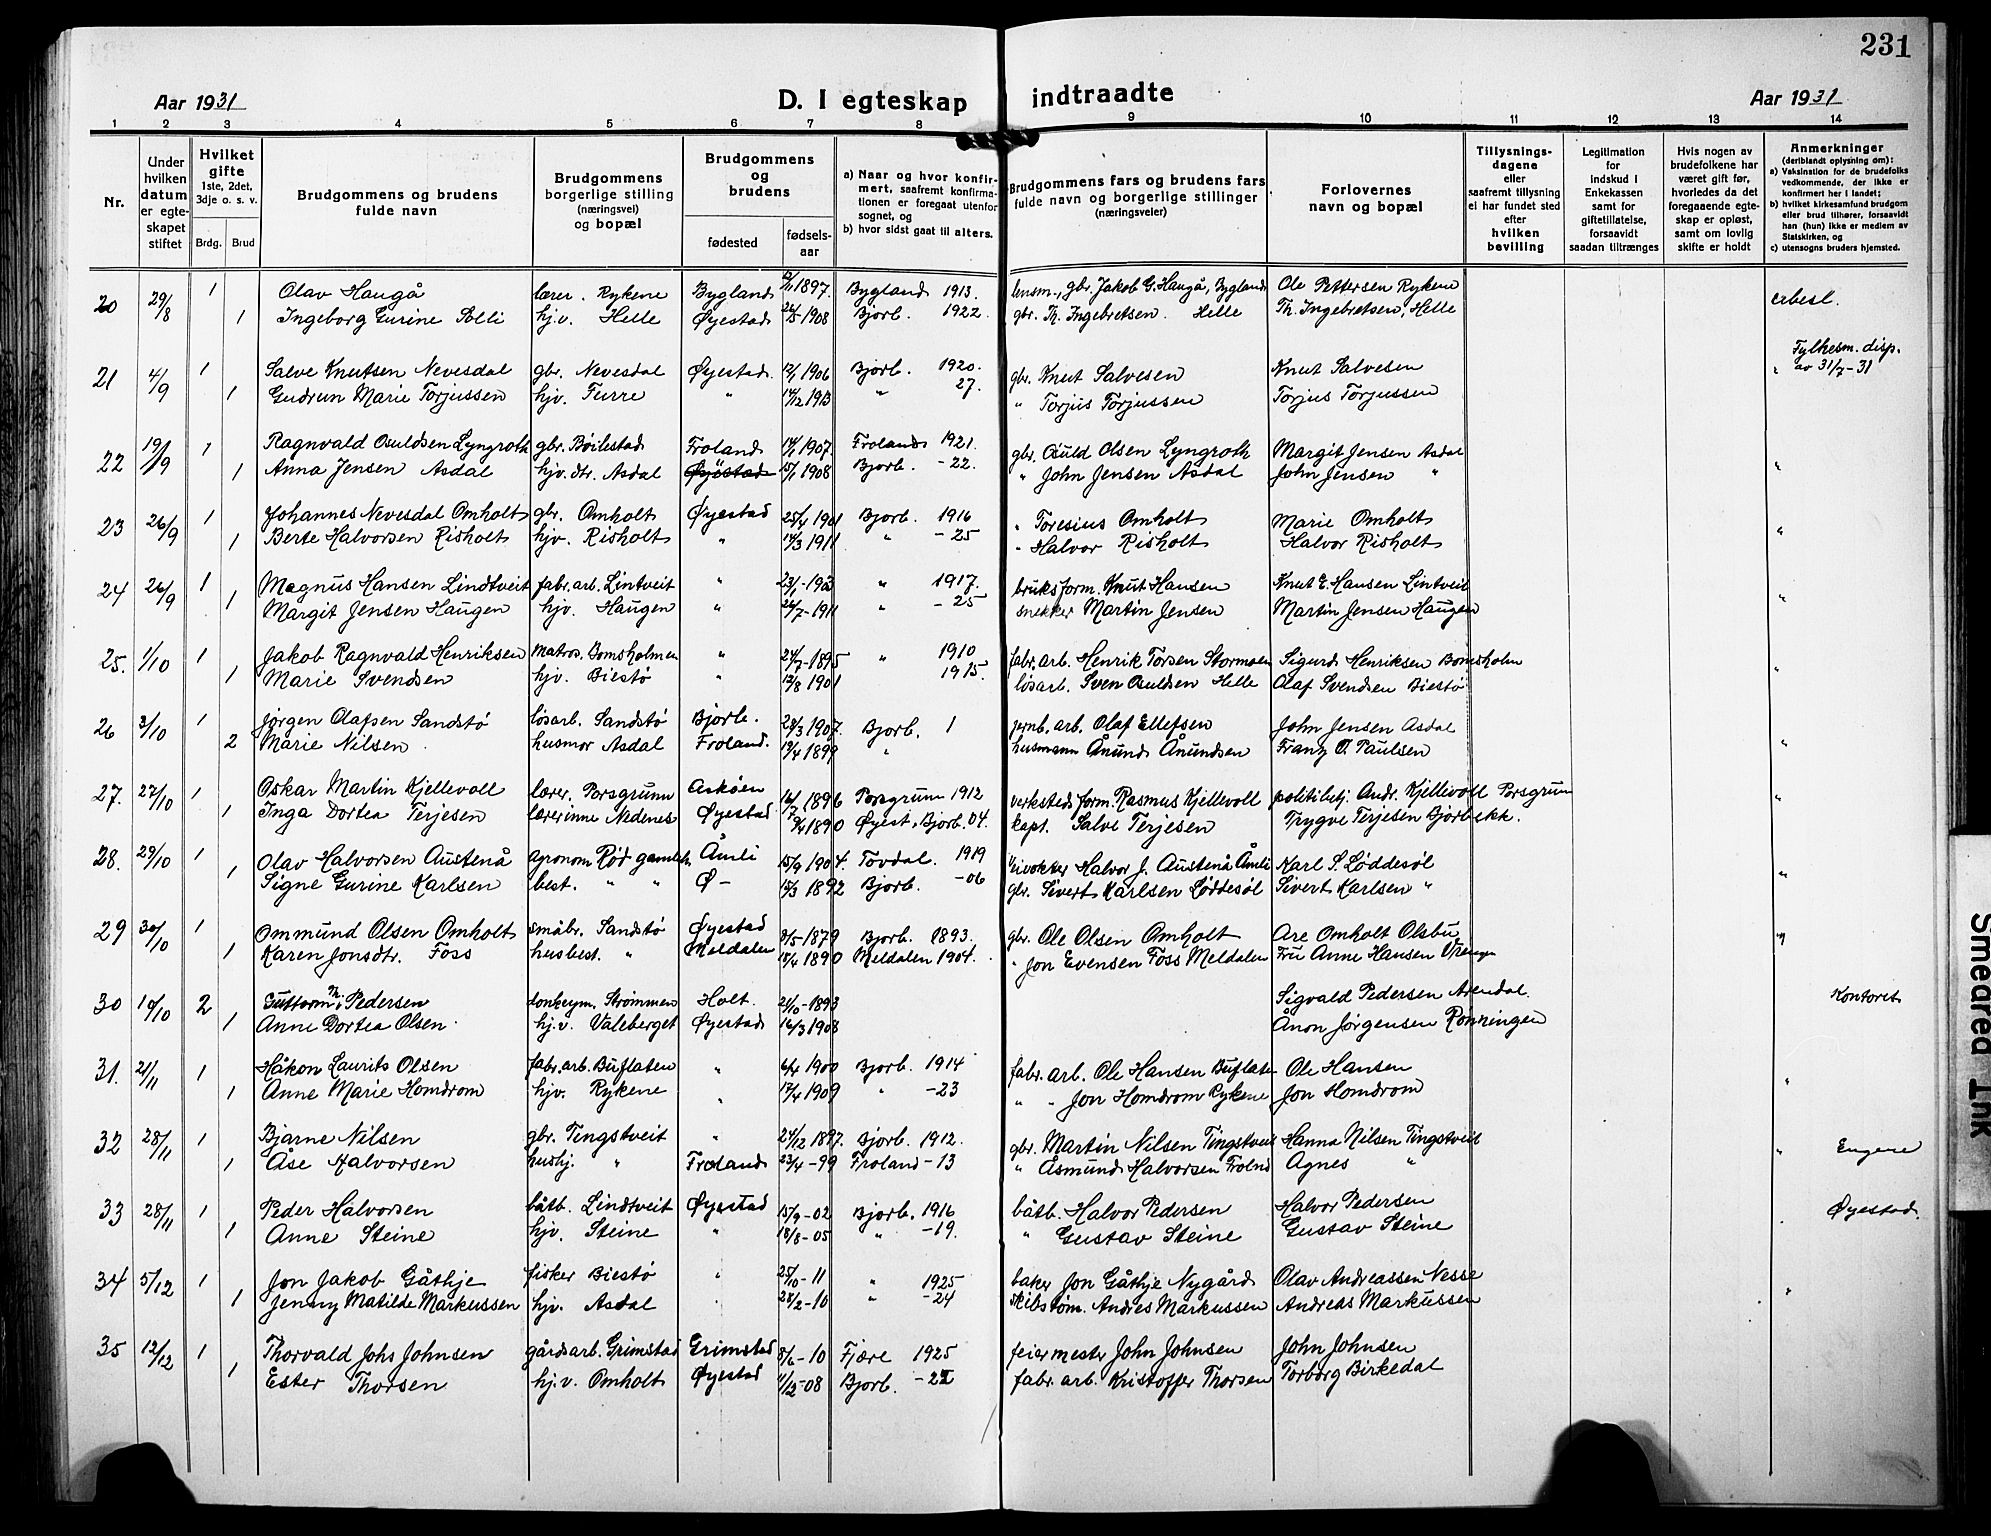 231
Aar 1931 D. I egteskap indtraadte Aar 1931
1 2 3 4 5 6 7 8 9 10 11 12 13 14
Nr.
Under hvilken datum er egteskapet stiftet
Hvilket gifte 1ste, 2det, 3dje o. s. v.
Brdg. Brud
Brudgommens og brudens fulde navn
Brudgommens borgerlige stilling (næringsvei) og bopæl
Brudgommens og brudens
fødested fødselsaar
a) Naar og hvor konfirmert, saafremt konfirmationen er foregaat utenfor sognet, og
b) hvor sidst gaat til alters.
Brudgommens fars og brudens fars fulde navn og borgerlige stillinger (næringsveier)
Forlovernes navn og bopæl
Tillysningsdagene eller saafremt tillysning ei har fundet sted efter hvilken bevilling
Legitimation for indskud i Enkekassen samt for giftetillatelse, forsaavidt saadan tiltrænges
Hvis nogen av brudefolkene har været gift før, hvorledes da det foregaaende egteskap er opløst, samt om lovlig skifte er holdt
Anmerkninger (deriblandt oplysning om):
a) Vaksination for de brudefolks vedkommende, der ikke er konfirmert her i landet;
b) hvilket kirkesamfund brudgom eller brud tilhører, forsaavidt han (hun) ikke er medlem av Statskirken, og
c) utensogns bruders hjemsted.
20 29/8 1 Olav Haugå lærer. Rykene Bygland 1897. Bygland 1913. lensm., gbr. Jakob G. Haugå, Bygland Ole Pettersen Rykene
1 Ingeborg Gurine Solli hj.v. Helle Øyestad 26/5 1908 Bjorb. 1922. gbr. Th. Ingebretsen. Helle Th. Ingebretsen, Helle
21 4/9 1 Salve Knutsen Nevesdal gbr. Nevesdal Øyestad. 12/1 1906 Bjorb. 1920. gbr. Knut Salvesen Knut Salvesen Fylkesm. disp. av 31/7-31
1 Gudrun Marie Torjussen hjv. Furre " 14/12 1913 " 27. " Torjus Torjussen Torjus Torjussen
22 19/9 1 Ragnvald Osuldsen Lyngroth gbr. Bøilestad Froland 14/1 1907. Froland 1921. gbr. Osuld Olsen Lyngroth Margit Jensen Asdal
1 Anna Jensen Asdal hjv. dtr. Asdal Øyestad 15/1 1908 Bjorb. -22. " John Jensen Asdal John Jensen " "
23 26/9 1 Johannes Nevesdal Omholt gbr. Omholt Øyestad 25/4 1901 Bjorb. 1916 " Toresius Omholt Marie Omholt
1 Berte Halvorsen Risholt hjv. Risholt " 14/3 1911 " -25 " Halvor Risholt Halvor Risholt "
24 26/9 1 Magnus Hansen Lindtveit fabr. arb. Lintveit " 23/1-1903 " 1917. bruksform. Knut Hansen Knut E. Hansen Lintveit
1 Margit Jensen Haugen hjv. Haugen " 26/7-1911 " -25 snekker Martin Jensen Martin Jensen Haugen "
25. 1/10 1 Jakob Ragnvald Henriksen Matros. Bomsholmen " 24/7-1895 " 1910 fabr. arb. Henrik Torsen Stormoen Sigurd Henriksen Bomsholm
1 Marie Svendsen hjv. Biestø " 12/8 1901 1915. løsarb. Sven Osuldsen Helle Olaf Svendsen Biestø "
26 3/10 1 Jørgen Olafsen Sandstø løsarb. Sandstø Bjorb. 28/3 1907. Bjorb. 1 jernb. arb. Olaf Ellefsen John Jensen Asdal
2 Marie Nilsen husmor Asdal Froland. 19/4 1899 " husmann Ånund Ånundsen Franz O. Paulsen "
27. 27/10 1 Oskar Martin Kjellevoll lærer. Porsgrunn Askøen 16/7 1896 Porsgrunn 1912 verksteds form. Rasmus Kjellevoll politibetj. Andr. Kjellevoll Porsgrunn "
1 Inga Dortea Terjesen lærerinne Nedenes Øyestad 1890 Øyest, Bjorb. 04. kapt. Salve Terjesen Trygve Terjesen Bjorbekk.
28. 29/10 1 Olav Halvorsen Austenå agronom Rød gamleh. Åmli 15/9 1904. Tovdal. 1919 Halvor J. Austenå Åmli Karl S. Løddesøl
1 Signe Gurine Karlsen best. " " Ø- 15/3 1892 Bjorb. -06 gbr. Sivert Karlsen Løddesøl Sivert Karlsen " "
29 30/10 1 Ommund Olsen Omholt småbr. Sandstø Øyestad 9/5-1879 Bjorb. 1893. gbr. Ole Olsen Omholt Are Omholt Olsbu "
1 Karen Jonsdtr. Foss husbest. " Meldalen 15/4 1890 Meldalen 1904. " Jon Evensen Foss Meldalen Fru Anne Hansen
30 10/10 2 Guttorm Th. Pedersen donkeym. Strømmen Holt. 21/10-1893 Sigvald Pedersen Arendal. Kontoret
1 Anne Dortea Olsen. hj.v. Valeberget Øyestad 16/3 1908 Ånon Jørgensen Rønningen
31. 21/11 1 Håkon Laurits Olsen fabr. arb. Buflaten " 6/4 1900 Bjorb. 1914 fabr. arb. Ole Hansen Buflaten Ole Hansen
1 Anne Marie Homdrom hjv. Rykene " 17/4 1909 " -23 " " Jon Homdrom Rykene Jon Homdrom "
32 28/11 1 Bjarne Nilsen gbr. Tingstveit " 24/12 1897. Bjorb. 1912. gbr. Martin Nilsen Tingstveit Hanna Nilsen Tingstveit
1 Åse Halvorsen hushj. " Froland 23/4-99 Froland-13 " Asmund Halvorsen Frolnd Agnes " " Engene
33 28/11 1 Peder Halvorsen båtb. Lindtveit Øyestad 15/9-02 Bjorb. 1916 båtb. Halvor Pedersen Halvor Pedersen Øyestad.
1 Anne Steine hjv. Steine " 18/8-05 " -19. " Gustav Steine Gustav Steine
34 5/12 1 Jon Jakob Gåthje fisker Biestø " 25/10-11 " 1925 baker Jon Gåthje Nygård Olav Andreassen Nesse
1 Jenny Matilde Markussen hjv. Asdal " 28/2-10 " -24 skibstøm. Andreas Markussen Andreas Markussen "
35 12/12 1 Thorvald Johs Johnsen gårdsarb. Grimstad Grimstad 8/6-10 Fjære 1925 feiermester John Johnsen John Johnsen
1 Ester Thorsen hj.v. Omholt Øyestad 1/12-08 Bjorb. -22 fabr. arb. Kristoffer Thorsen Torborg Birkedal
Smeared Ink